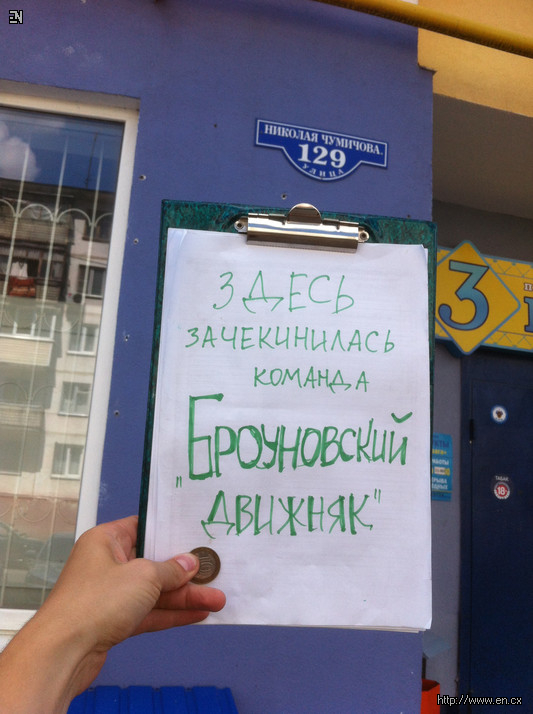 EN
НИКОЛАЯ ЧУМИЧОВА
129
УЛИЦА
ЗДЕСЬ
ЗАЧЕКИНИЛАСЬ
КОМАНДА
"БРОУНОВСКИЙ
ДВИЖНЯК"
3
ТАБАК
18
http://www.en.cx